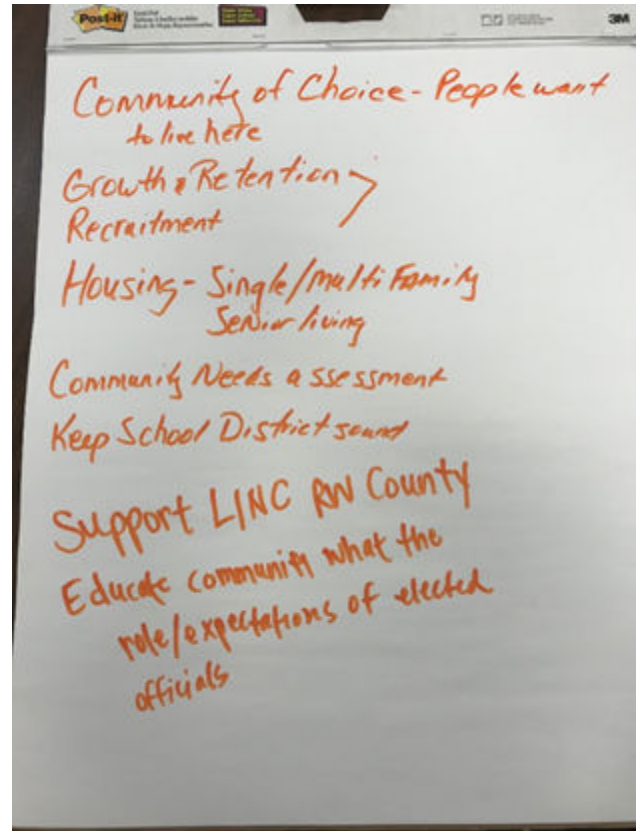 Post-it
3M
Community of Choice - People want
to live here
Growth & Retention
Recruitment
Housing - Single/multi Family
Senior living
Community Needs assessment
Keep School District sound
Support LINC RW County
Educate community what the
role/expectations of elected
officials